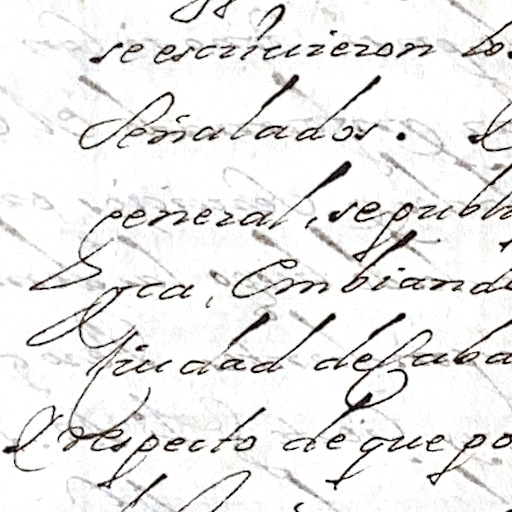 se escriuieron los
Señalados.
general, se publi
Embiando
Ciudad dela aba
respecto de que po